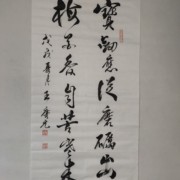 寶劍從磨礪出
梅花香自苦寒來
戊戌夏月王